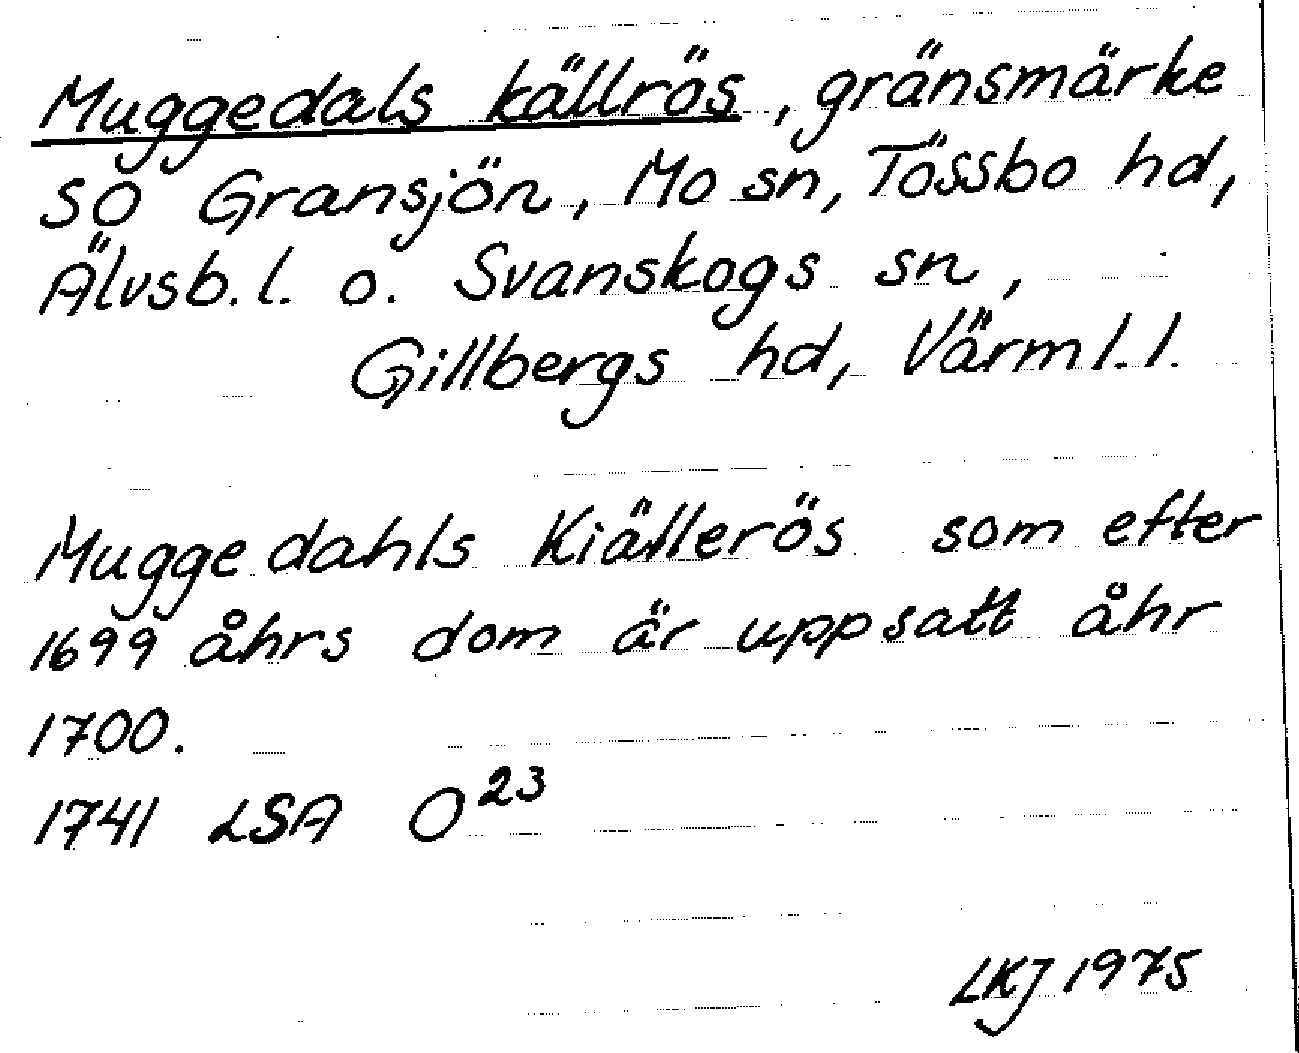 Muggedals källrös, gränsmärke
SO Gransjön, Mo sn, Tössbo hd,
Älvsb.l. o. Svanskogs sn,
Gillbergs hd, Värml.l.
Muggedahls Kiällerös som efter
1699 åhrs dom är uppsatt åhr
1700.
1741 LSA O²³
LKJ 1975